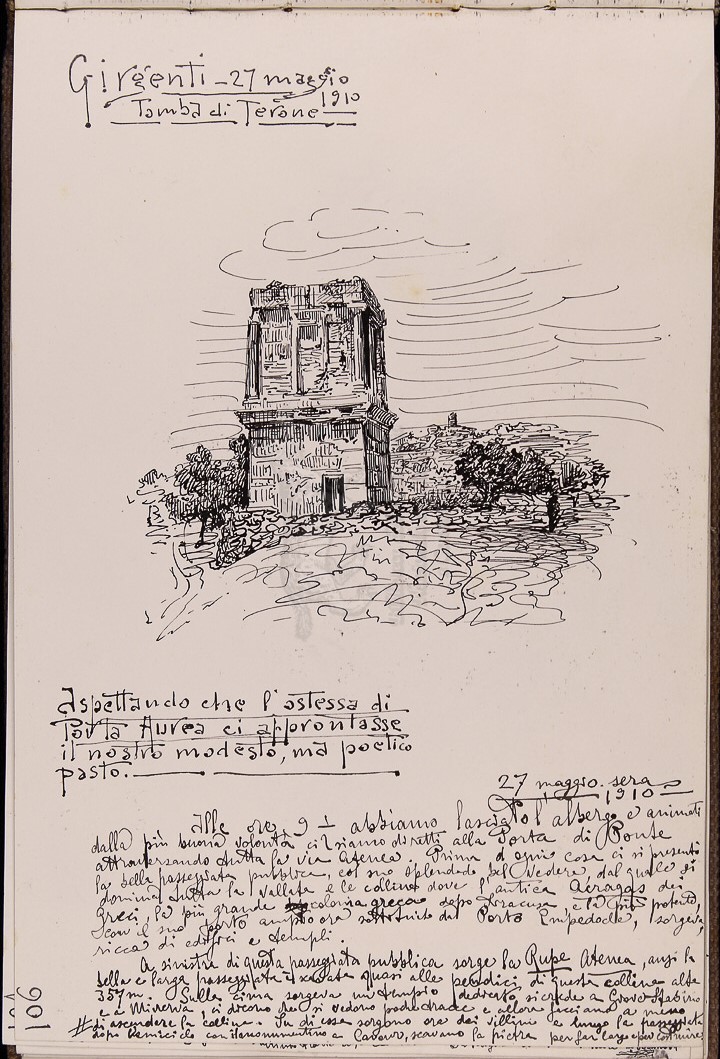 Girgenti - 27 maggio
1910
Tomba di Terone
Aspettando che l'ostessa di
Porta Aurea ci approntasse
il nostro modesto, ma poetico
pasto.
27 maggio. sera
1910
Alle ore 9 1/2 abbiamo lasciato l'albergo e animati
dalla più buona volontà ci siamo diretti alla Porta di Ponte
attraversando tutta la via Atenea. Prima d'ogni cosa ci si presenta
la bella passeggiata pubblica, col suo splendido bel vedere, dal quale si
domina tutta la vallata e le colline dove l'antica Acragas dei
Greci, la più grande colonia greca dopo Siracusa e la più potente,
con il suo porto ampio ora sostituito dal Porto Empedocle, sorgeva
ricca di edifici e templi.
A sinistra di questa passeggiata pubblica sorge la Rupe Atenea, anzi la
bella e larga passeggiata è scavata quasi alle pendici di questa collina alta
357 m. Sulla cima sorgeva un tempio dedicato, si crede a Giove Atabirio
e a Minerva, si dicono che si vedono poche tracce e allora facciamo a meno
# di ascendere la collina. Su di essa sorgono ora dei villini e lungo la passeggiata
dopo l'emiciclo con il monumentino a Cavour, scavano la pietra per far largo e per costruire
106